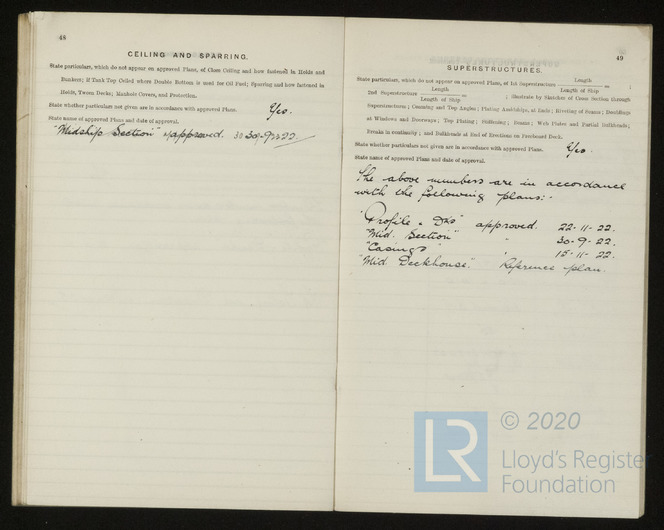 48
CEILING AND SPARRING.
State particulars, which do not appear on approved Plans, of Close Ceiling and how fastened in Holds and
Bunkers; if Tank Top Ceiled where Double Bottom is used for Oil Fuel; Sparring and how fastened in
Holds, 'Tween Decks; Manhole Covers, and Protection.
State whether particulars not given are in accordance with approved Plans. Yes.
State name of approved Plans and date of approval.
"Midship Section" approved. 30-9-22
49
SUPERSTRUCTURES.
State particulars, which do not appear on approved Plans, of 1st Superstructure Length / Length of Ship = ;
2nd Superstructure Length / Length of Ship = ; illustrate by Sketches of Cross Section through
Superstructures; Coaming and Top Angles; Plating Amidships, at Ends; Riveting of Seams; Doublings
at Windows and Doorways; Top Plating; Stiffening; Beams; Web Plates and Partial Bulkheads;
Breaks in continuity; and Bulkheads at End of Erections on Freeboard Deck.
State whether particulars not given are in accordance with approved Plans. Yes
State name of approved Plans and date of approval.
The above numbers are in accordance
with the following plans:-
"Profile & Dks" approved. 22-11-22.
"Mid. Section" " 30-9-22.
"Casings" " 15-11-22.
"Mid Deckhouse". Reference plan.
LR
© 2020
Lloyd's Register
Foundation